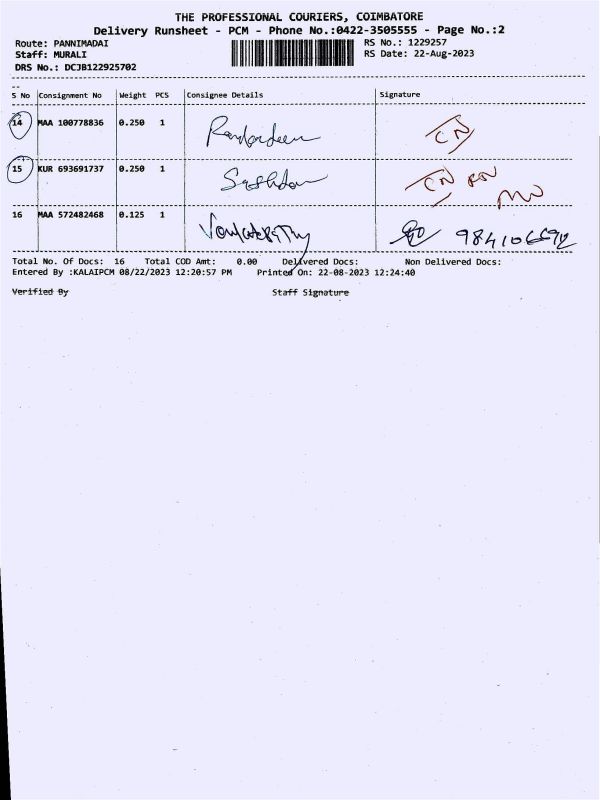 THE PROFESSIONAL COURIERS, COIMBATORE
Delivery Runsheet - PCM - Phone No.:0422-3505555 - Page No.:2
Route: PANNIMADAI RS No.: 1229257
Staff: MURALI RS Date: 22-Aug-2023
DRS No.: DCJB122925702
S No Consignment No Weight PCS Consignee Details Signature
14 MAA 100778836 0.250 1 CN
15 KUR 693691737 0.250 1 CN
16 MAA 572482468 0.125 1
Total No. Of Docs: 16 Total COD Amt: 0.00 Delivered Docs: Non Delivered Docs:
Entered By :KALAIPCM 08/22/2023 12:20:57 PM Printed On: 22-08-2023 12:24:40
Verified By Staff Signature